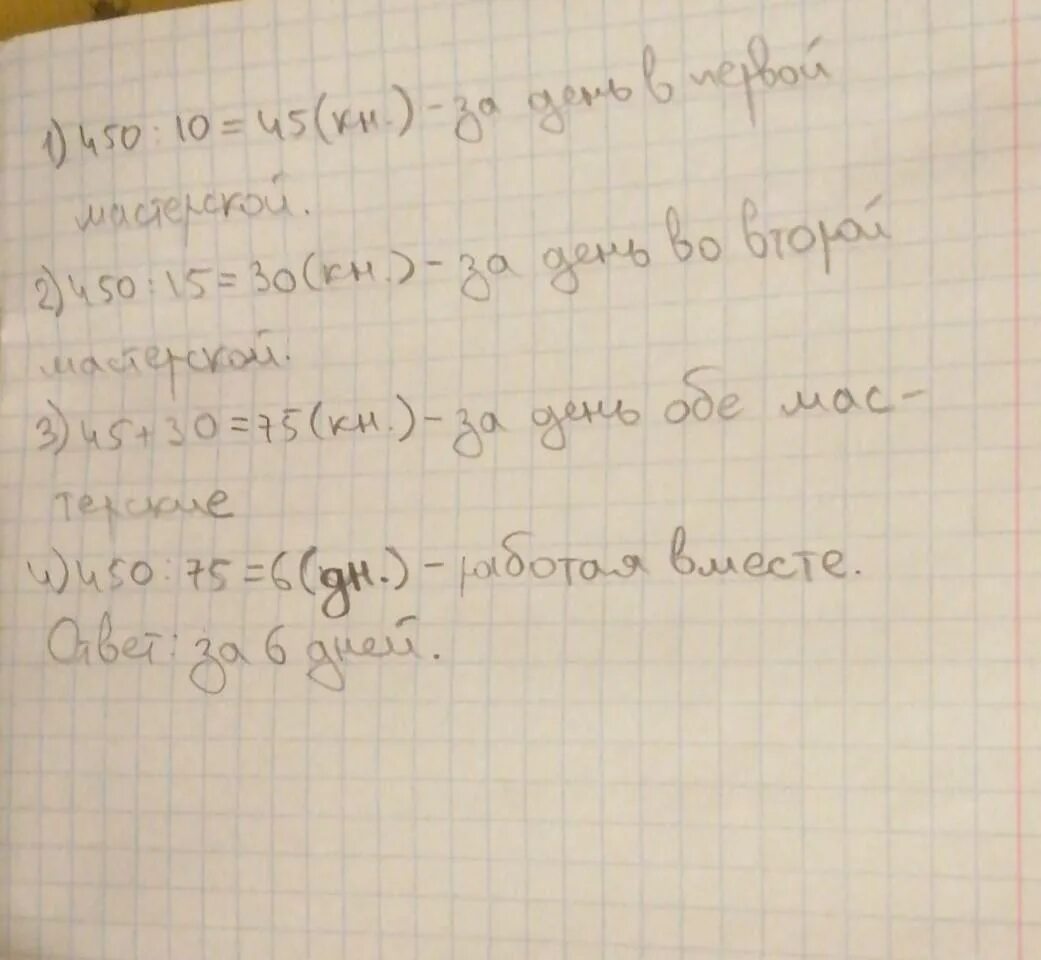 1) 450 : 10 = 45 (кн.) - за день в первой
мастерской.
2) 450 : 15 = 30 (кн.) - за день во второй
мастерской.
3) 45 + 30 = 75 (кн.) - за день обе мас-
терские
4) 450 : 75 = 6 (дн.) - работая вместе.
Ответ: за 6 дней.